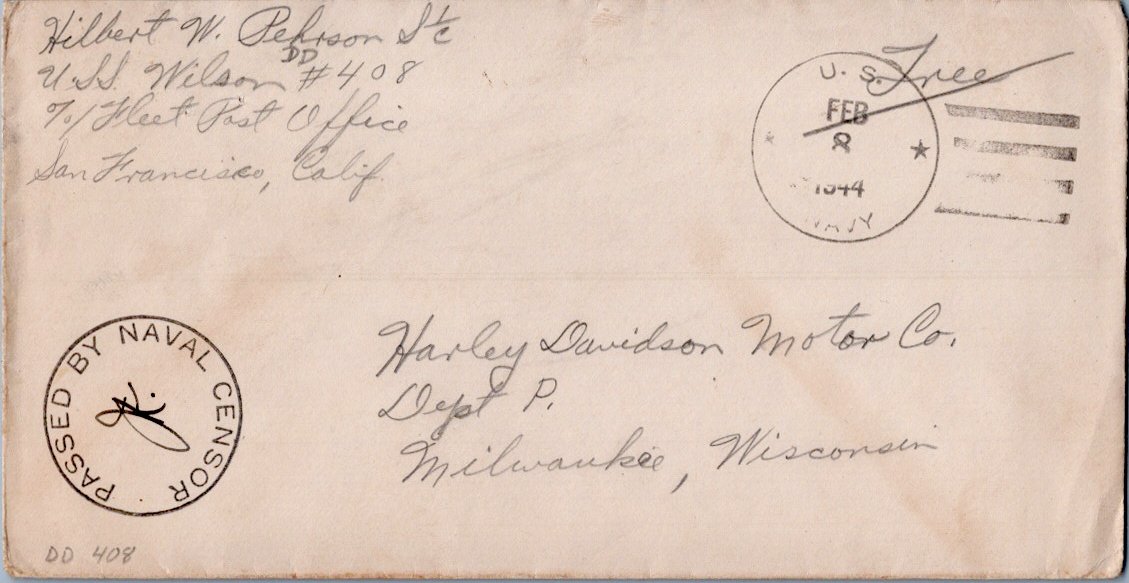 Hilbert W. Pehrson S1/c
U.S.S. Wilson DD #408
%Fleet Post Office
San Francisco, Calif.
Free
U. S.
FEB
8
1944
NAVY
Harley Davidson Motor Co.
Dept P.
Milwaukee, Wisconsin
PASSED BY NAVAL CENSOR
DD 408